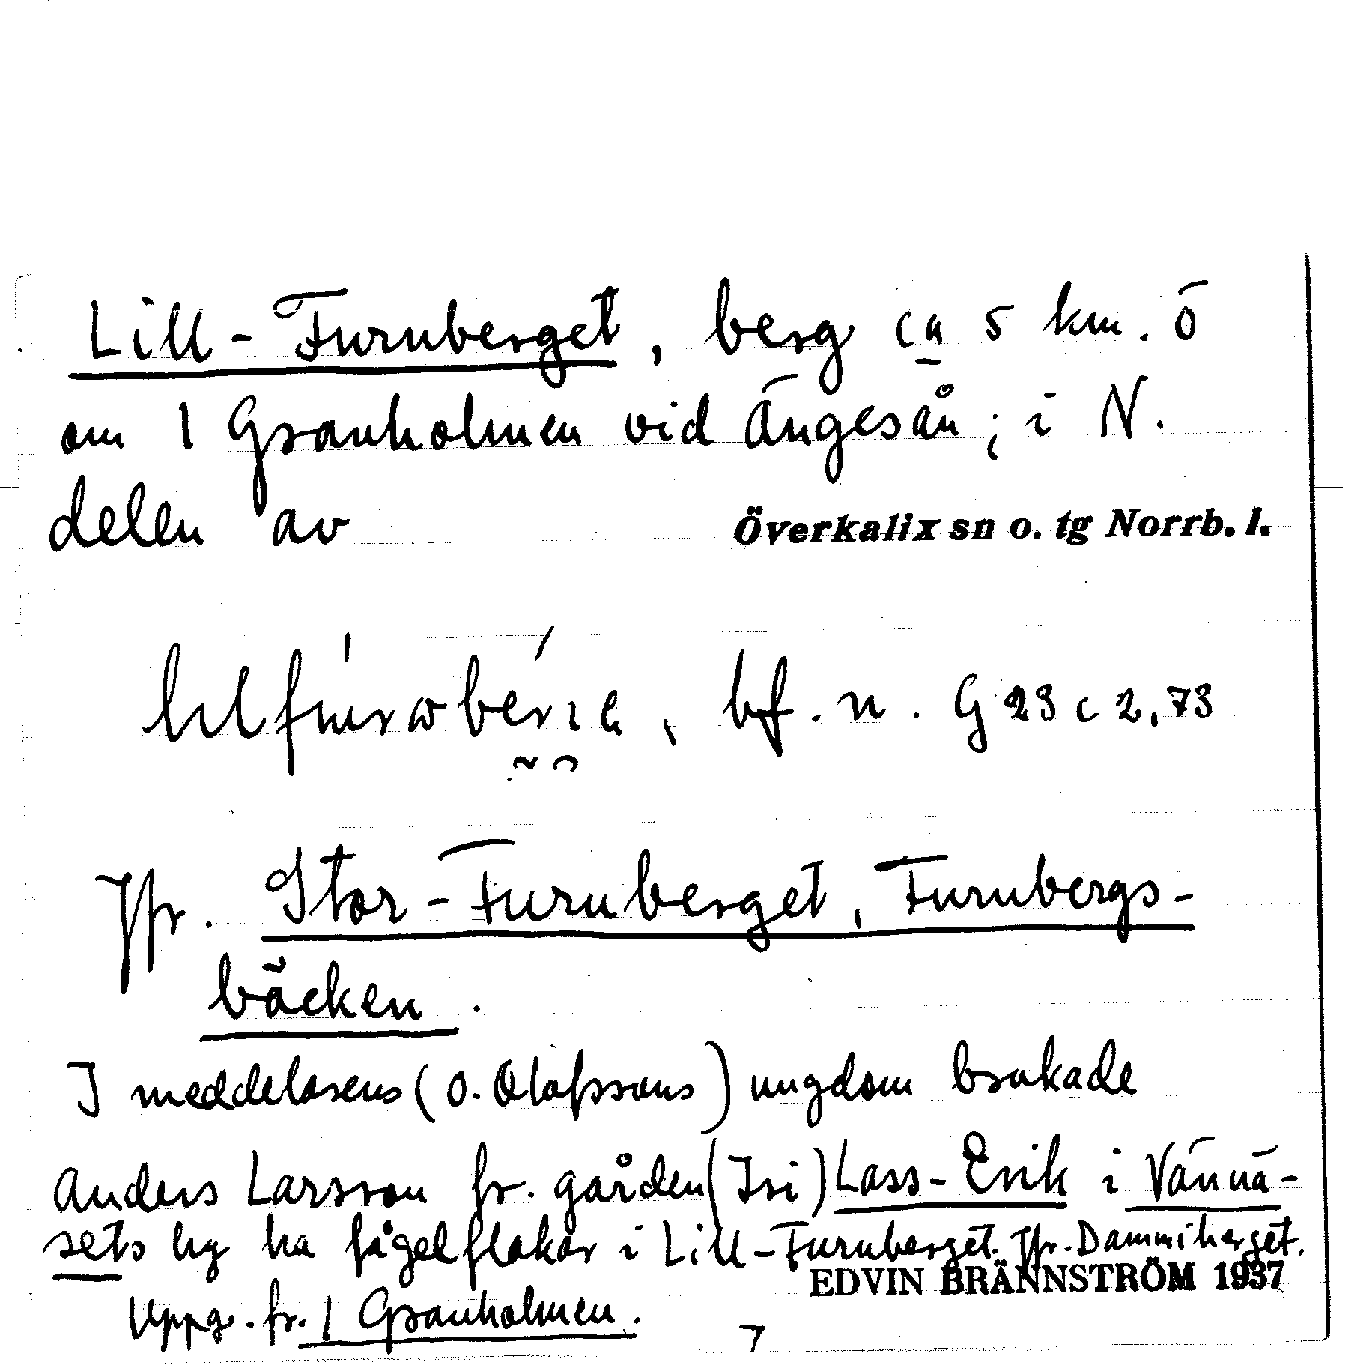 Lill-Furuberget, berg ca 5 km. ö
om 1 Granholmen vid Ängesån; i N.
delen av Överkalix sn o. tg Norrb. l.
bf. n. G 23 c 2,73
Jfr. Stor-Furuberget, Furubergs-
bäcken.
I meddelarens (O. Olofssons) ungdom brukade
Anders Larsson fr. gården (Isi) Lass-Erik i Vännä-
sets by ha fågelflakar i Lill-Furuberget. Jfr. Dammiberget.
EDVIN BRÄNNSTRÖM 1937
Uppg. fr. 1 Granholmen.
7